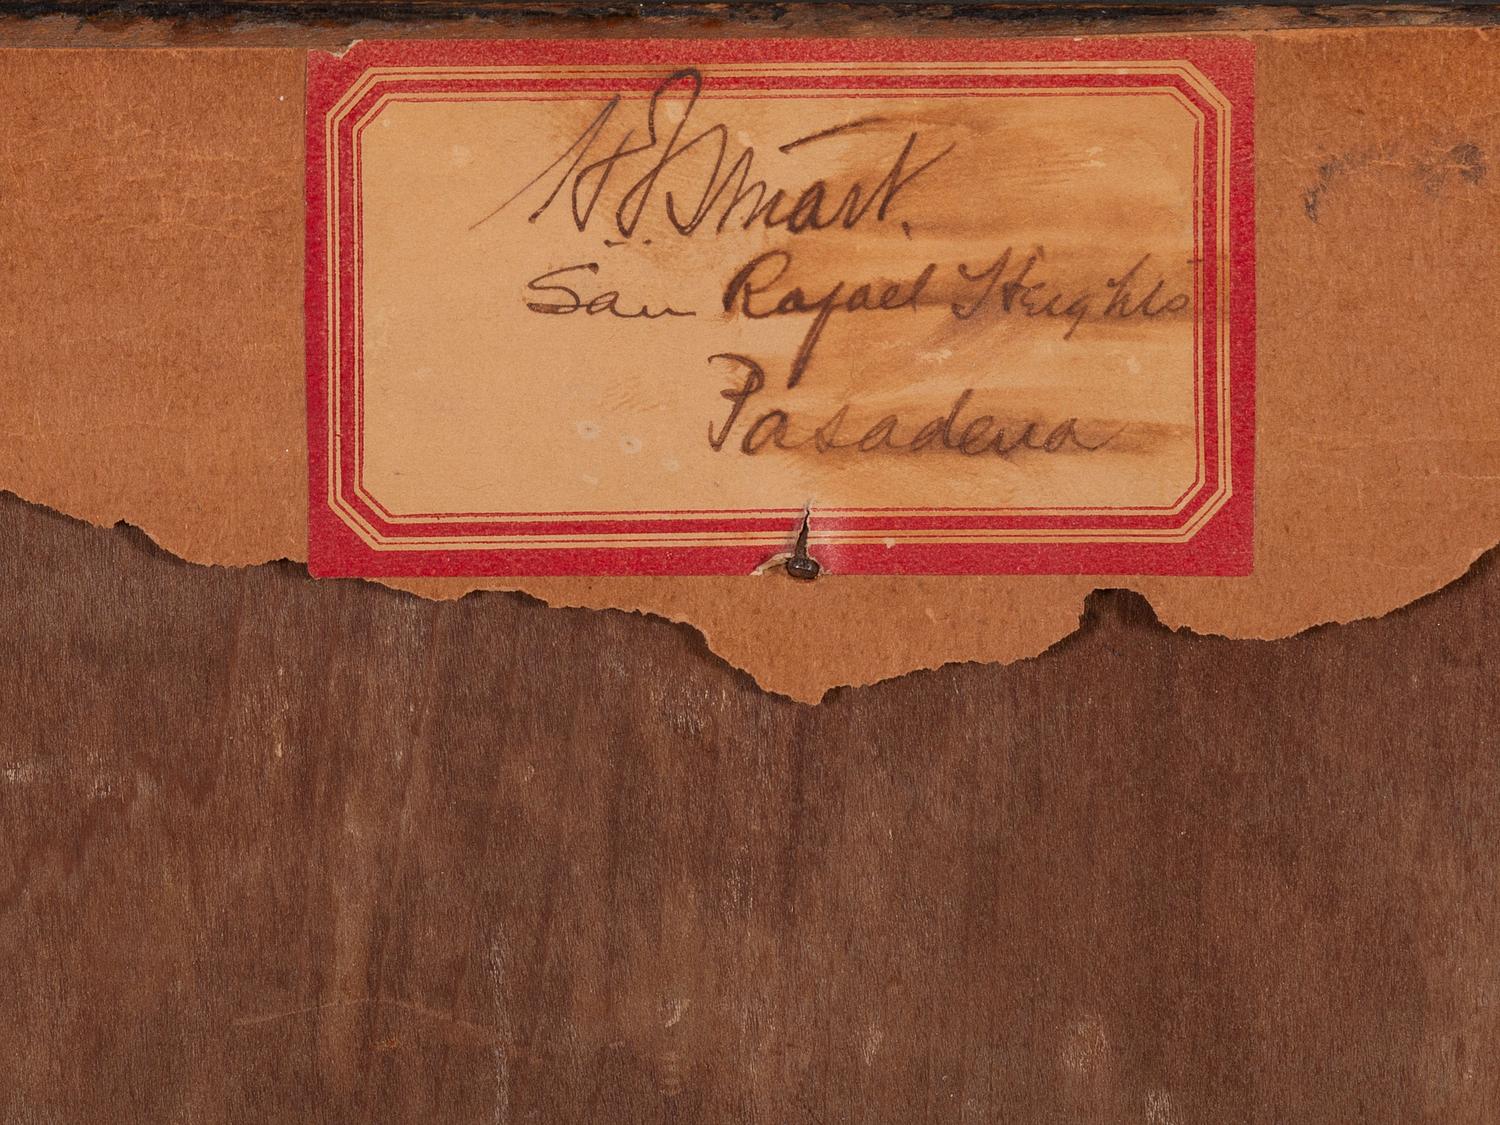 H. J. Smart.
San Rafael Heights
Pasadena